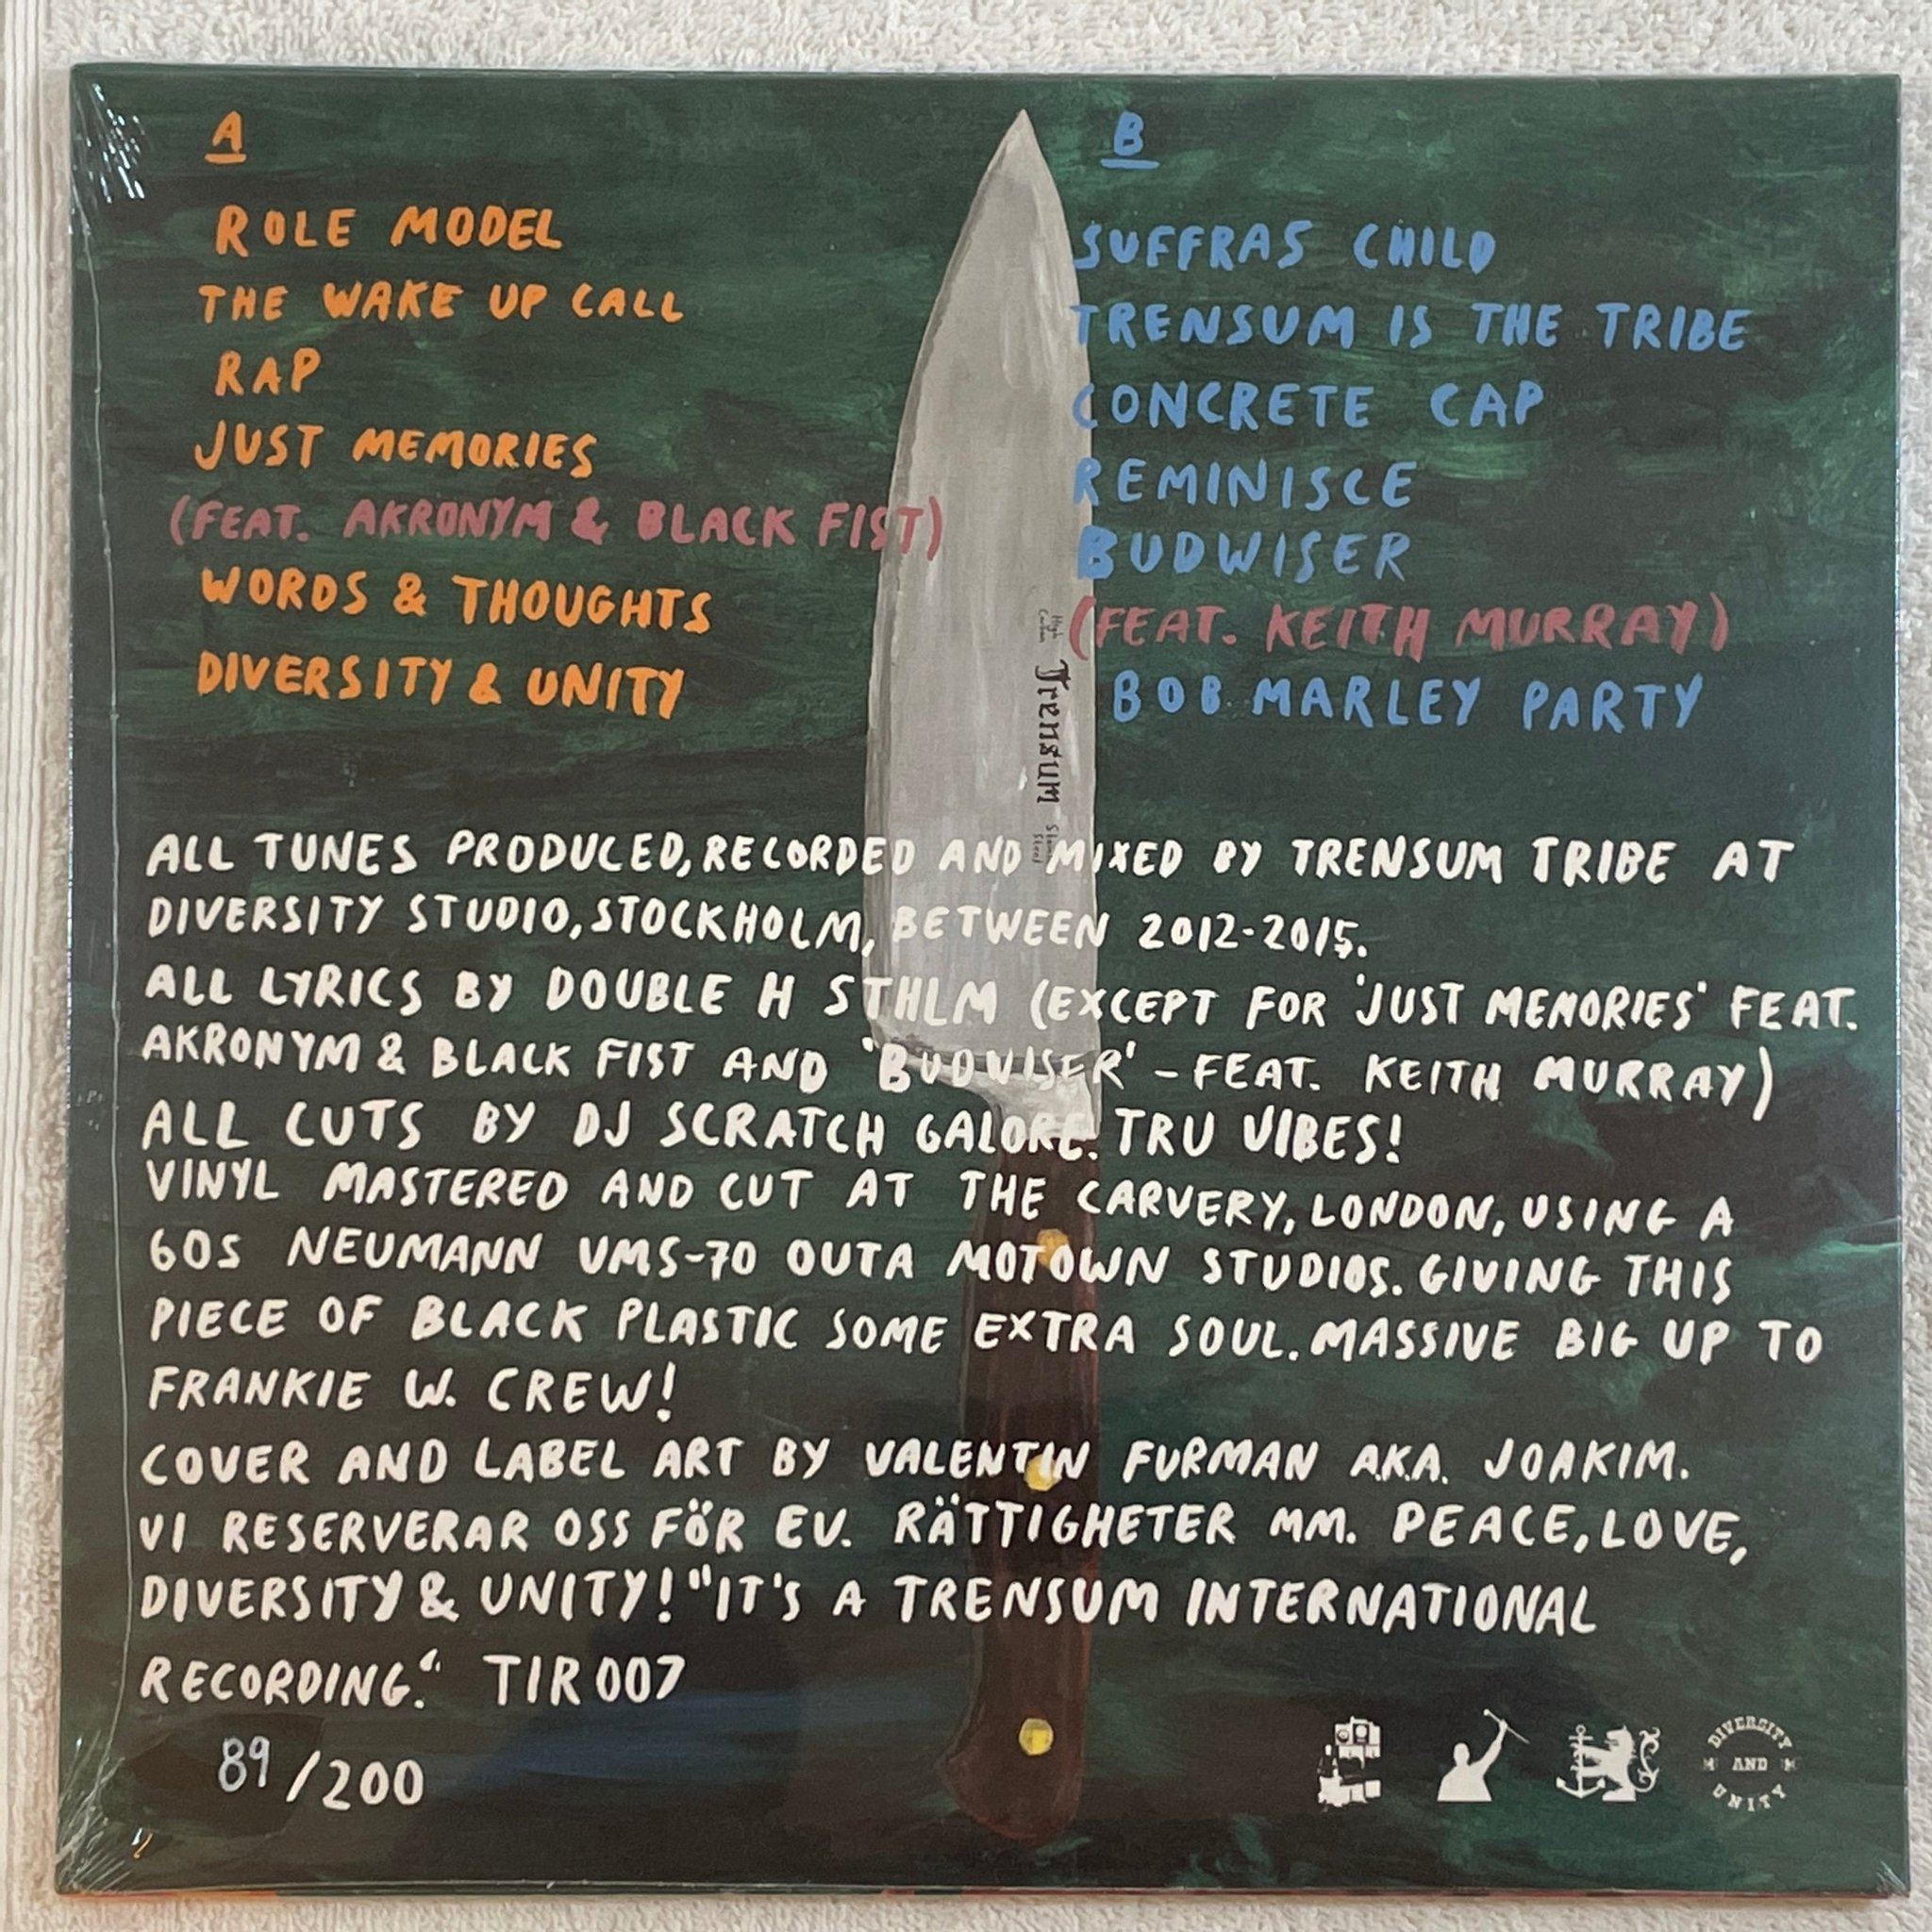 A
ROLE MODEL
THE WAKE UP CALL
RAP
JUST MEMORIES
(FEAT. AKRONYM & BLACK FIST)
WORDS & THOUGHTS
DIVERSITY & UNITY
B
SUFFRAS CHILD
TRENSUM IS THE TRIBE
CONCRETE CAP
REMINISCE
BUDWISER
(FEAT. KEITH MURRAY)
BOB MARLEY PARTY
High
Carbon
Trensum
ALL TUNES PRODUCED, RECORDED AND MIXED BY TRENSUM TRIBE AT
DIVERSITY STUDIO, STOCKHOLM, BETWEEN 2012-2015.
ALL LYRICS BY DOUBLE H STHLM (EXCEPT FOR 'JUST MEMORIES' FEAT.
AKRONYM & BLACK FIST AND 'BUDWISER' - FEAT. KEITH MURRAY)
ALL CUTS BY DJ SCRATCH GALORE. TRU VIBES!
VINYL MASTERED AND CUT AT THE CARVERY, LONDON, USING A
60S NEUMANN VMS-70 OUTA MOTOWN STUDIOS. GIVING THIS
PIECE OF BLACK PLASTIC SOME EXTRA SOUL. MASSIVE BIG UP TO
FRANKIE W. CREW!
COVER AND LABEL ART BY VALENTIN FURMAN AKA. JOAKIM.
VI RESERVERAR OSS FÖR EV. RÄTTIGHETER MM. PEACE, LOVE,
DIVERSITY & UNITY! "IT'S A TRENSUM INTERNATIONAL
RECORDING." TIR 007
89/200
DIVERSITY
AND
UNITY